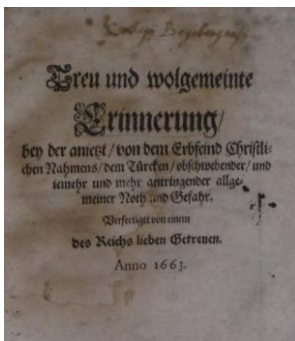 Treu und wolgemeinte
Erinnerung/
bey der anietzt/von dem Erbfeind Christli-
chen Nahmens/dem Türcken/obschwebender/und
iemehr und mehr antringender allge-
meiner Noth und Gefahr.
Verfertiget von einem
des Reichs lieben Getreuen.
Anno 1663.